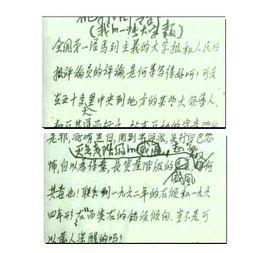 (我的一张大字报)
全国第一张马列主义的大字报和人民日
报评论员的评论是何等写得好呵!可是
在五十天里中央到地方的某些大领导人,
却反其道而行之
是非,混淆黑白,围剿 实行白色恐
怖,自以为得意,长资产阶级的威风 何
其毒也!联系到一九六二年的右倾和一九六
四年形左而实右的错误倾向,岂不是可
以发人深醒的吗?